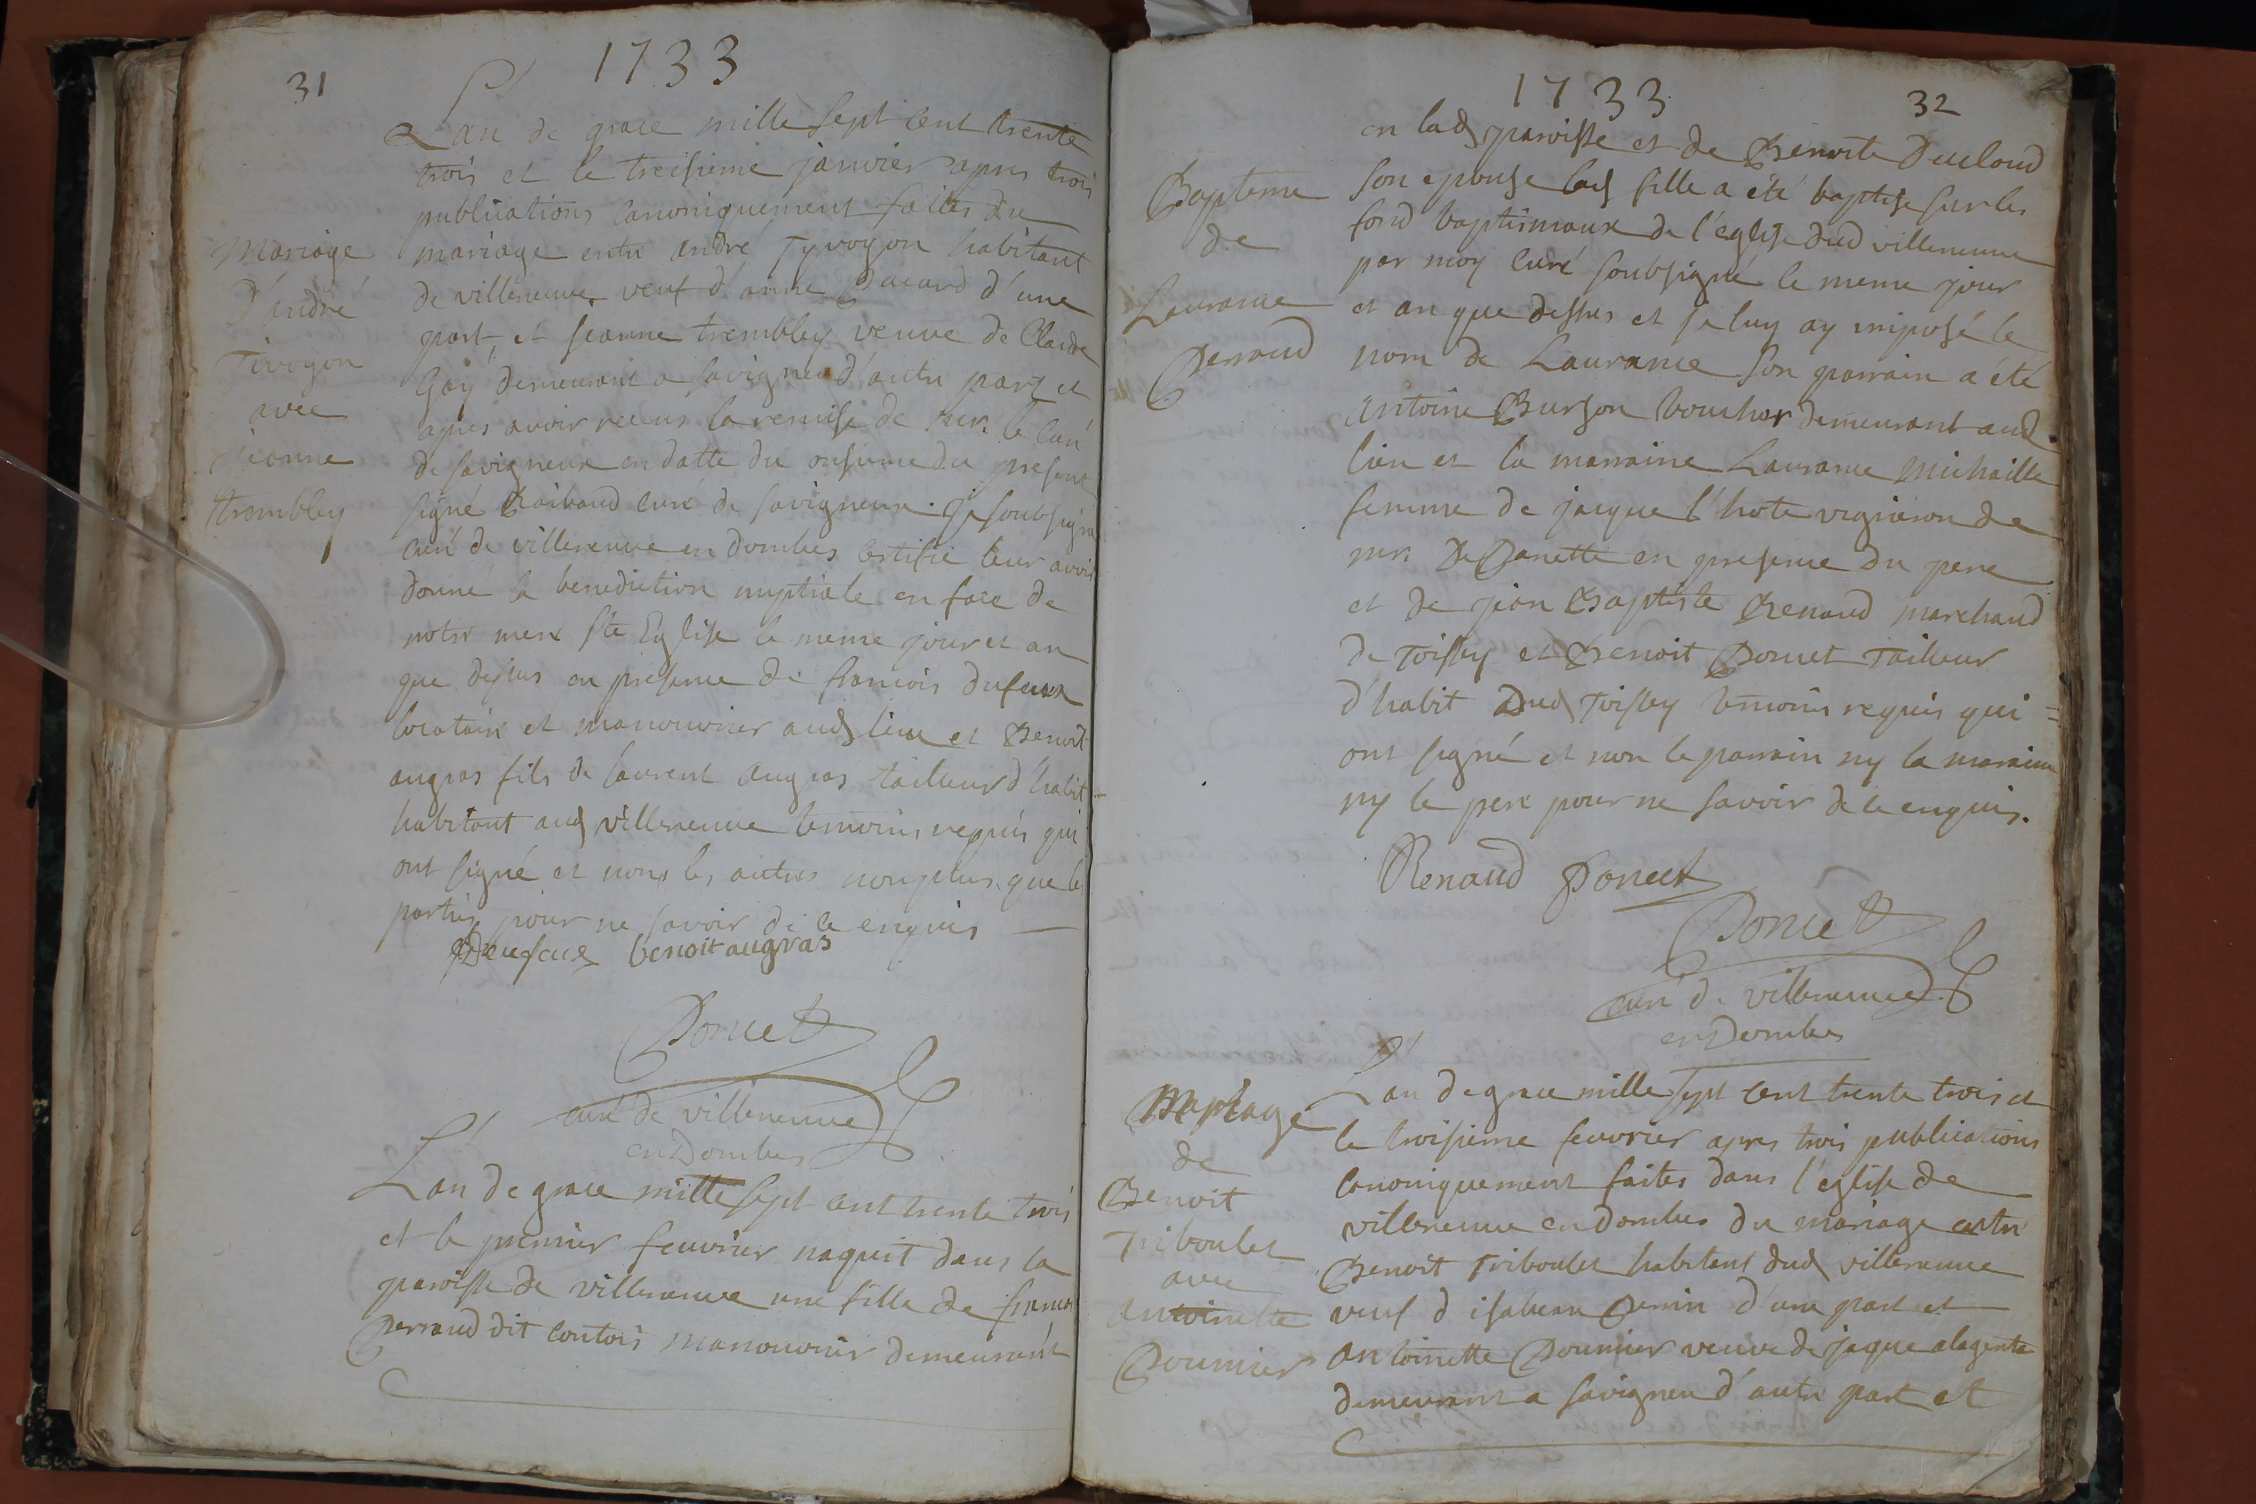 31
1733
L'an de grace mille sept cent trente
trois et le treisieme janvier apres trois
publications canoniquement faites du
mariage entre andré Tyvoyon habitant
de villeneuve veuf d'anne Dacard d'une
part et jeanne trembley veuve de Claude
Gay demeurant a savigneu d'autre part et
apres avoir receus la remise de mr. le curé
de savigneux en datte du onsieme du present
signé curé de savigneux je soubsigné
curé de villeneuve en dombes certifie leur avoir
donné la benediction nuptiale en face de
notre mere ste Eglise le meme jour et an
que dessus en presence de francois
locataire et manouvrier aud lieu et Benoit
augras fils de laurent augras tailleur d'habit
habitant aud villeneuve temoins requis qui
ont signé et nons les autres nonplus que les
parties pour ne savoir de ce enquis
benoit augras
Poncet
curé de villeneuve
en Dombes
Mariage
d'andré
Tivoyon
avec
jeanne
trembley
L'an de grace mille sept cent trente trois
et le premier feuvrier naquit dans la
paroisse de villeneuve une fille de
perraud dit contois manouvrier demeurant
1733
32
en lad paroisse et de Benoite Ducloud
son epouse lad fille a été baptise sur les
fond baptismaux de l'eglise dud villeneuve
par moy curé soubsigné le meme jour
et an que dessus et je luy ay imposé le
nom de Laurance son parrain a été
antoine Burson boucher demeurant aud
lieu et la marraine Laurance Michaille
femme de jacque l'hote vigneron de
mr. De en presence du pere
et de jean Baptiste Renaud marchand
de Toissey et Benoit Poncet Tailleur
d'habit Dud Toissey temoins requis qui =
ont signé et non le parrain ny la maraine
ny le pere pour ne savoir de ce enquis.
Renaud Poncet
Poncet
curé de villeneuve
en Dombes
Bapteme
de
Laurance
Perraud
L'an de grace mille sept cent trente trois et
le troisieme feuvrier apres trois publications
canoniquement faites dans l'eglise de
villeneuve en dombes du mariage entre
Benoit Triboulet habitant dud villeneuve
veuf d isabeau d'une part et
antoinette Poumier veuve de jaque alagente
demeurant a savigneu d'autre part et
Mariage
de
Benoit
Triboulet
avec
antoinette
Poumier